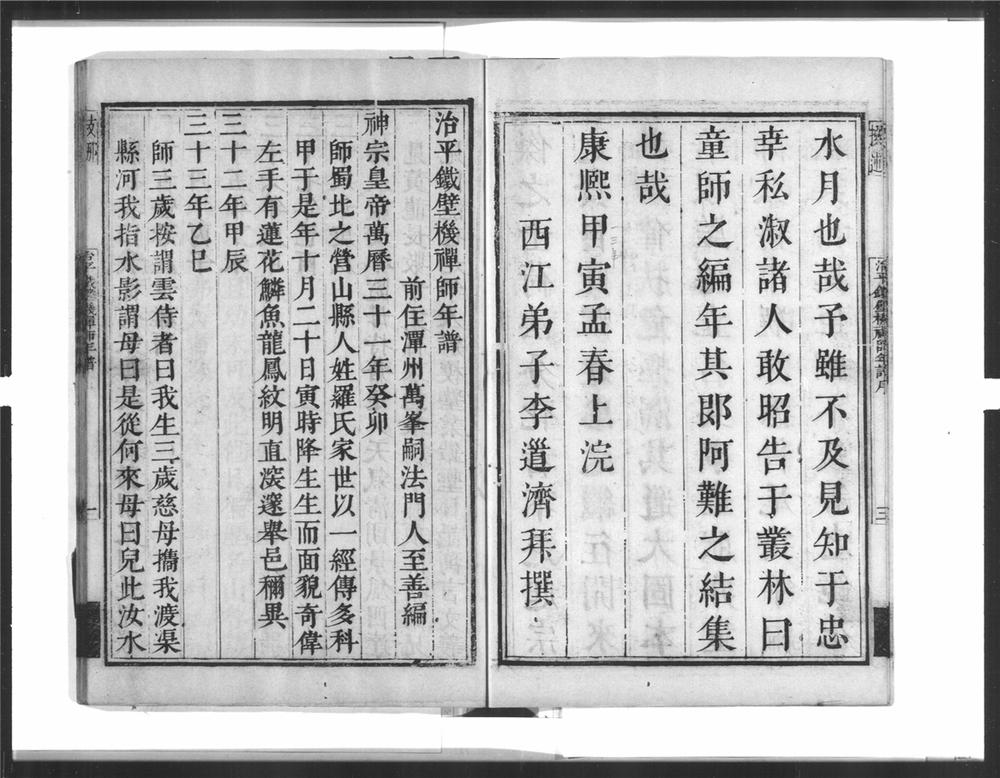 水月也哉予雖不及見知于忠
幸私淑諸人敢昭告于叢林曰
童師之編年其郎阿難之結集
也哉
康熙甲寅孟春上浣
西江弟子李道濟拜撰
治平鐵壁機禪師年譜序
三
治平鐵壁機禪師年譜
前住潭州萬峯嗣法門人至善編
神宗皇帝萬曆三十一年癸卯
師蜀北之營山縣人姓羅氏家世以一經傳多科
甲于是年十月二十日寅時降生生而面貌奇偉
左手有蓮花鱗魚龍鳳紋明直深邃舉邑稱異
三十二年甲辰
三十三年乙巳
師三歲按謂雲侍者曰我生三歲慈母攜我渡渠
縣河我指水影謂母曰是從何來母曰兒此汝水
一